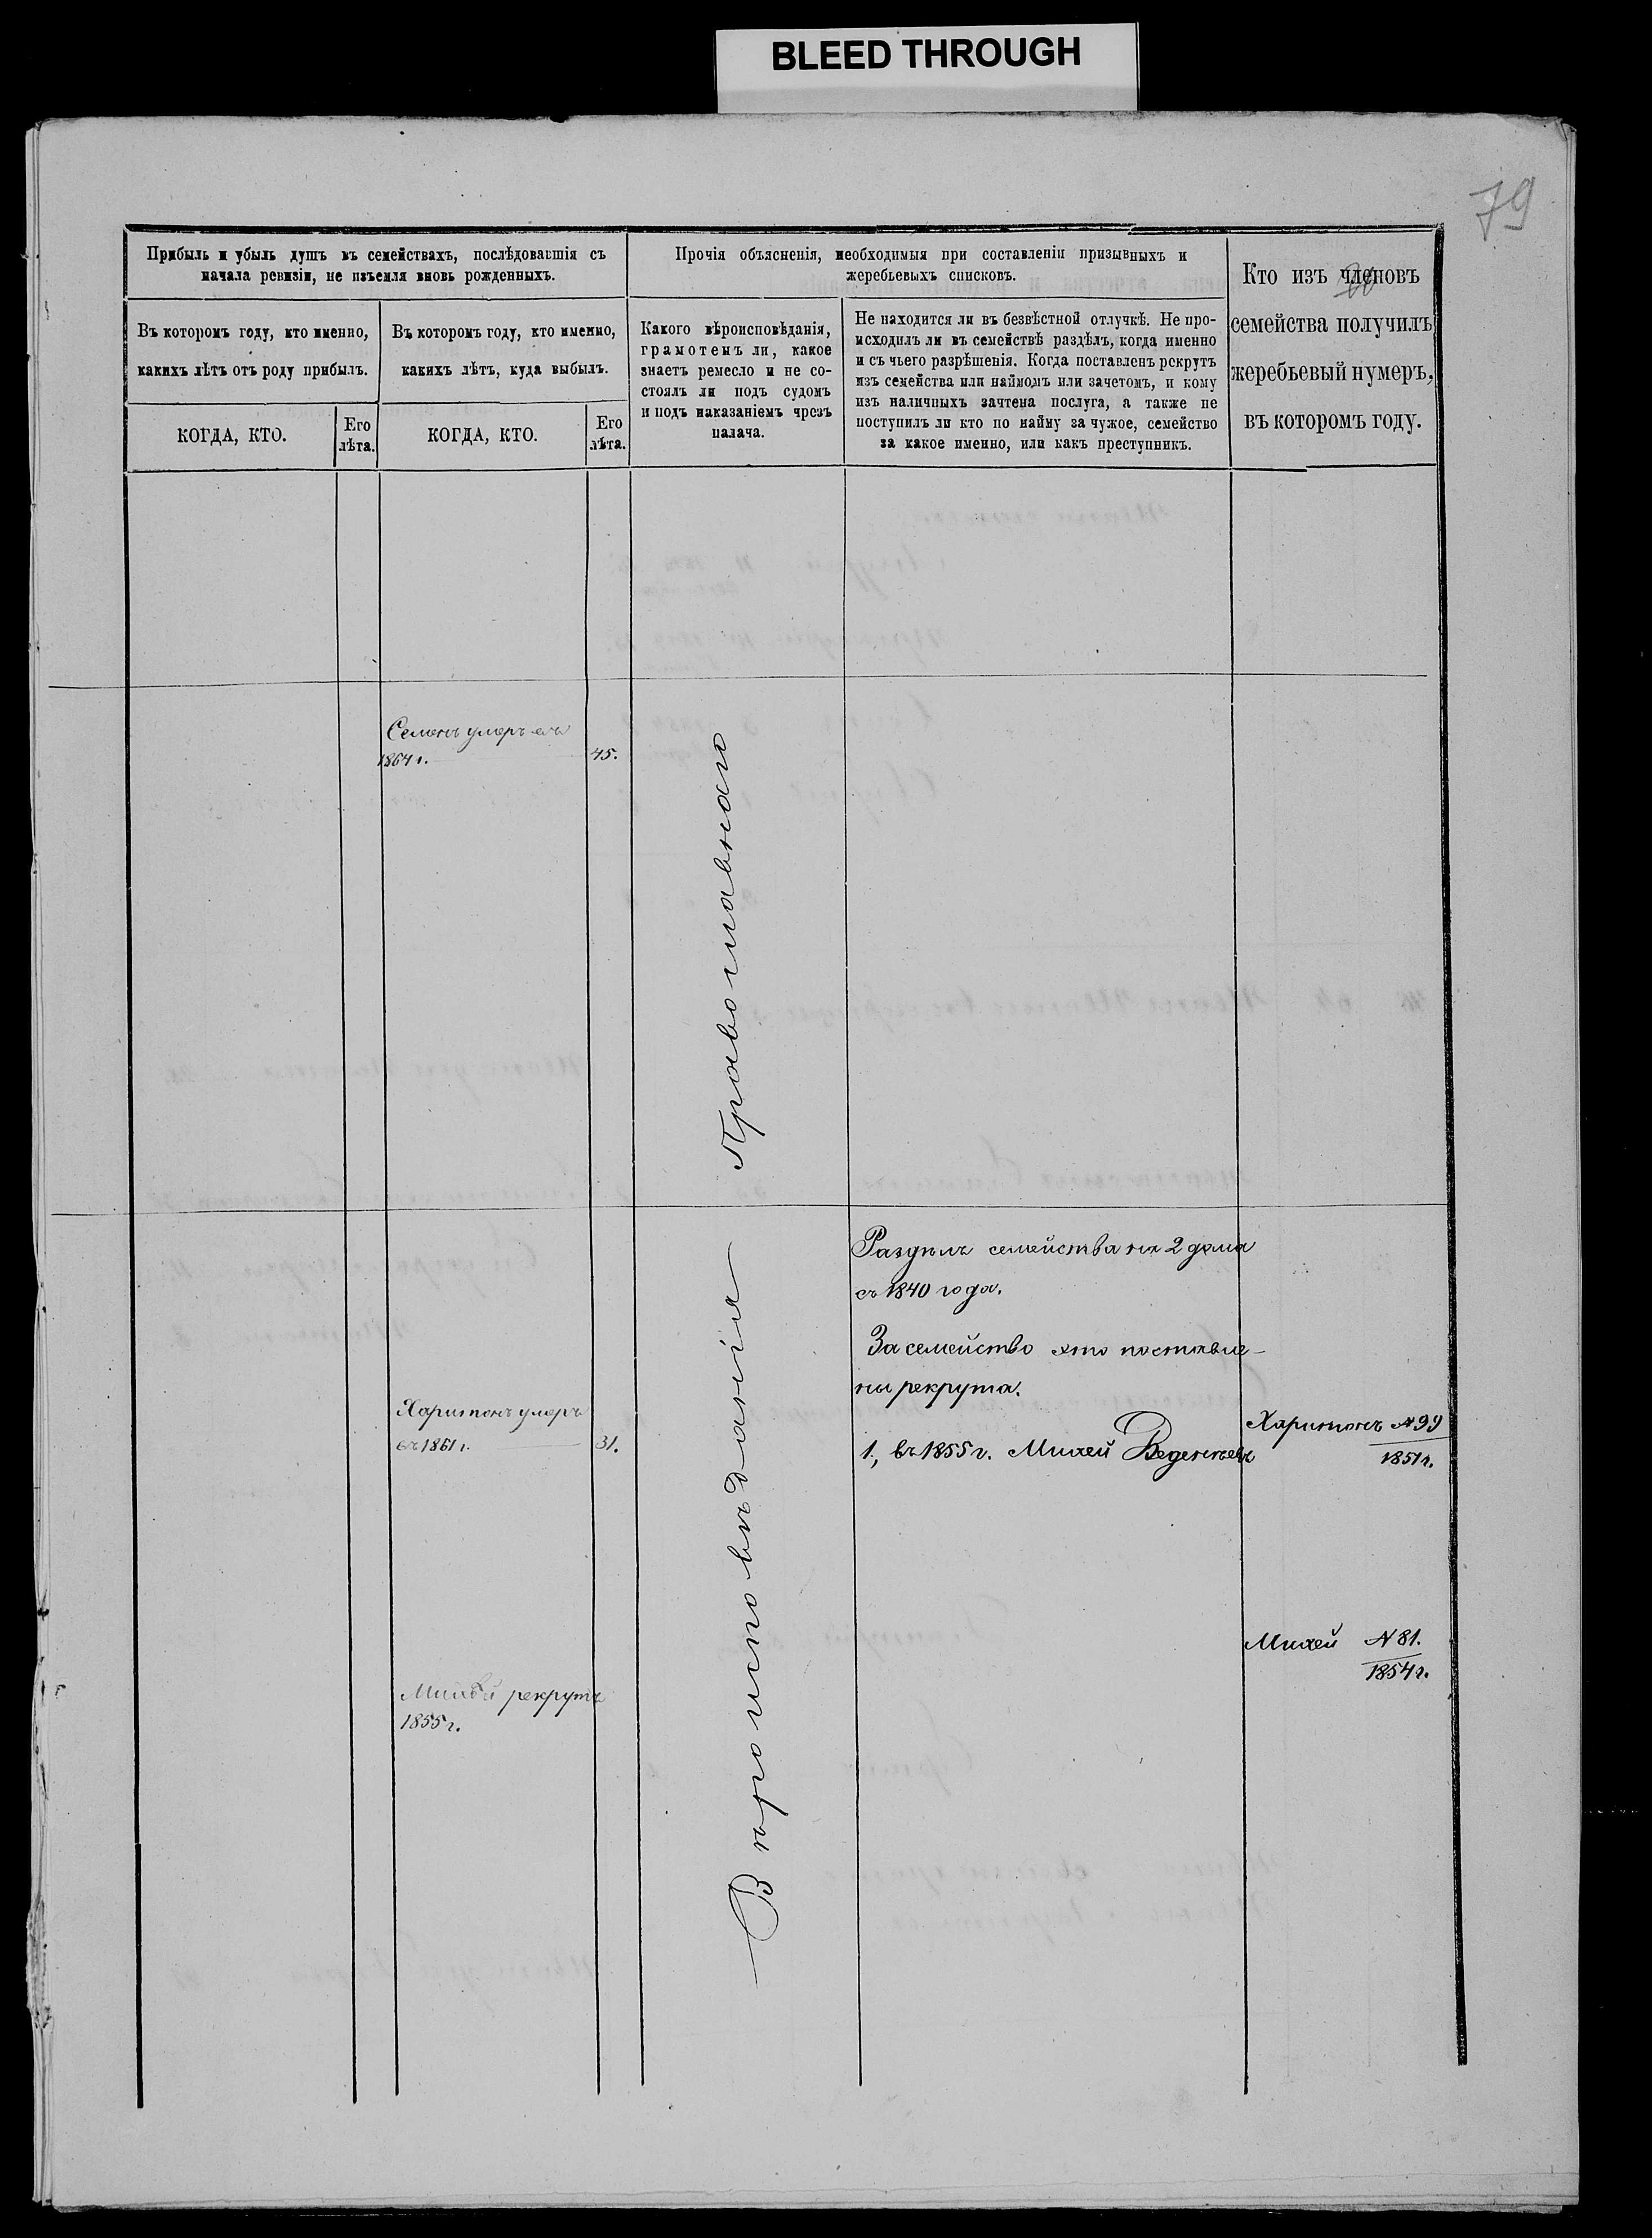 BLEED THROUGH
79
Прибыль и убыль душъ въ семействахъ, послѣдовавшія съ
начала ревизіи, не изъемля вновь рожденныхъ.
Прочія объясненія, необходимыя при составленіи призывныхъ и
жеребьевыхъ списковъ.
Кто изъ членовъ
семейства получилъ
жеребьевый нумеръ,
въ которомъ году.
Въ которомъ году, кто именно,
какихъ лѣтъ отъ роду прибылъ.
Въ которомъ году, кто именно,
какихъ лѣтъ, куда выбылъ.
Какого вѣроисповѣданія,
грамотенъ ли, какое
знаетъ ремесло и не со-
стоялъ ли подъ судомъ
и подъ наказаніемъ чрезъ
палача.
Не находится ли въ безвѣстной отлучкѣ. Не про-
исходилъ ли въ семействѣ раздѣлъ, когда именно
и съ чьего разрѣшенія. Когда поставленъ рекрутъ
изъ семейства или наймомъ или зачетомъ, и кому
изъ наличныхъ зачтена послуга, а также не
поступилъ ли кто по найму за чужое, семейство
за какое именно, или какъ преступникъ.
КОГДА, КТО.
Его
лѣта.
КОГДА, КТО.
Его
лѣта.
Семенъ умеръ въ
1864 г. 45.
Православнаго
Вѣроисповѣданія
Раздѣлъ семейства на 2 дома
съ 1840 года.
За семейство это поставле-
ны рекрута.
Харитонъ умеръ
въ 1861 г. 31.
1, въ 1855 г. Михей Веденѣевъ
Харитонъ №99
1851 г.
Михей №81.
1854 г.
Михей рекрутъ
1855 г.